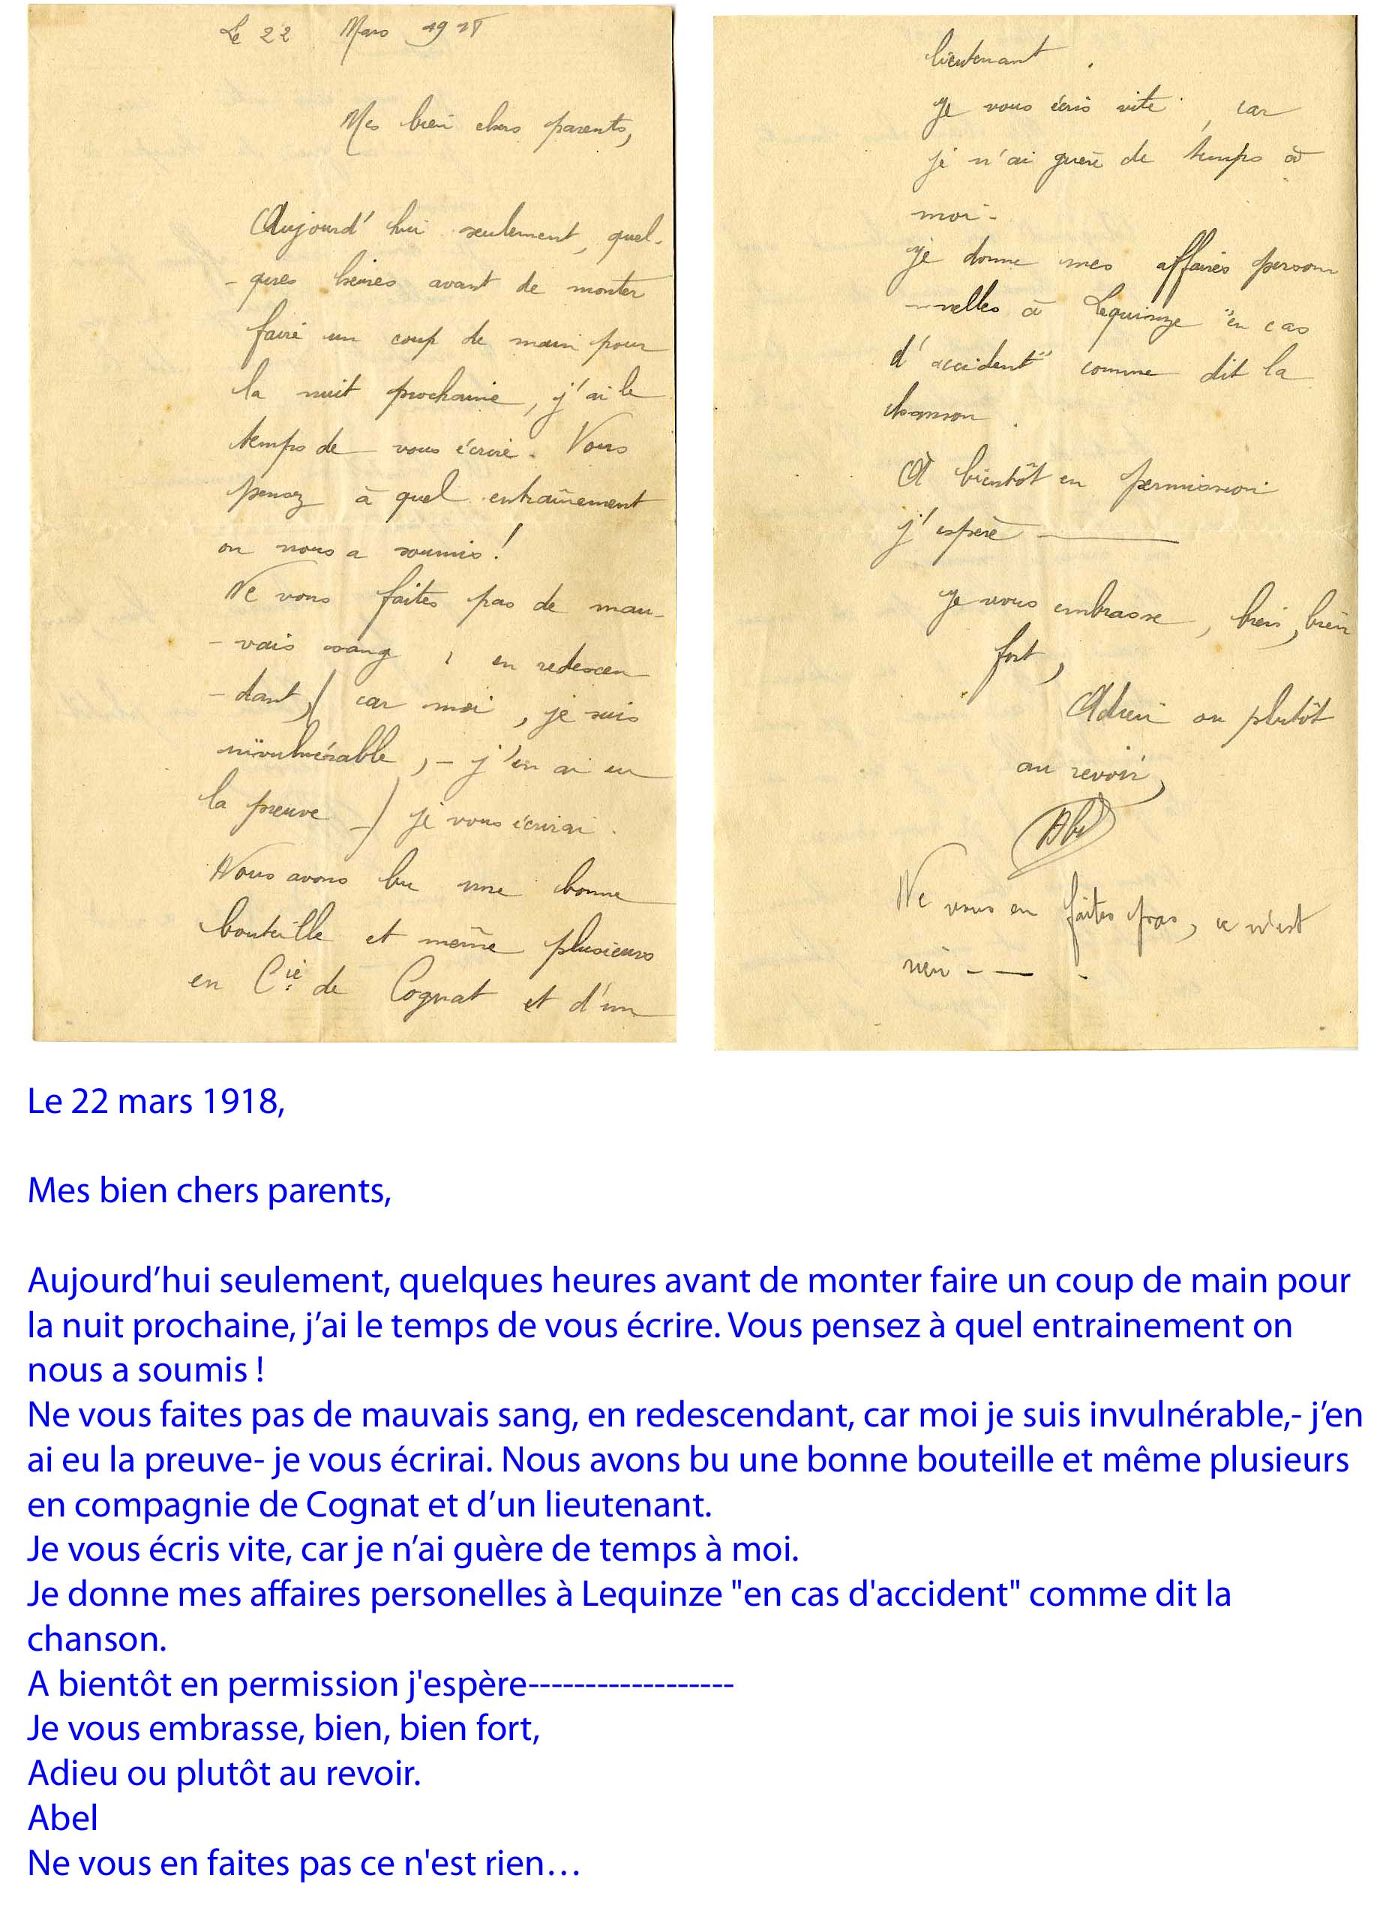 Le 22 Mars 1918
Mes bien chers parents,
Aujourd'hui seulement, quel-
-ques heures avant de monter
faire un coup de main pour
la nuit prochaine, j'ai le
temps de vous écrire. Vous
pensez à quel entraînement
on nous a soumis!
Ne vous faites pas de mau-
-vais sang, en redescen
-dant,/ car moi, je suis
invulnérable,- j'en ai eu
la preuve -/ je vous écrirai.
Nous avons bu une bonne
bouteille et même plusieurs
en Cie de Cognat et d'un
lieutenant.
Je vous écris vite, car
je n'ai guère de temps à
moi-
Je donne mes affaires person
-nelles à Lequinze "en cas
d'accident" comme dit la
chanson.
A bientôt en permission
j'espère ———
Je vous embrasse, bien, bien
fort,
Adieu ou plutôt
au revoir,
Abel
Ne vous en faites pas, ce n'est
rien - — -
Le 22 mars 1918,
Mes bien chers parents,
Aujourd’hui seulement, quelques heures avant de monter faire un coup de main pour
la nuit prochaine, j’ai le temps de vous écrire. Vous pensez à quel entrainement on
nous a soumis !
Ne vous faites pas de mauvais sang, en redescendant, car moi je suis invulnérable,- j’en
ai eu la preuve- je vous écrirai. Nous avons bu une bonne bouteille et même plusieurs
en compagnie de Cognat et d’un lieutenant.
Je vous écris vite, car je n’ai guère de temps à moi.
Je donne mes affaires personelles à Lequinze "en cas d'accident" comme dit la
chanson.
A bientôt en permission j'espère------------------
Je vous embrasse, bien, bien fort,
Adieu ou plutôt au revoir.
Abel
Ne vous en faites pas ce n'est rien…